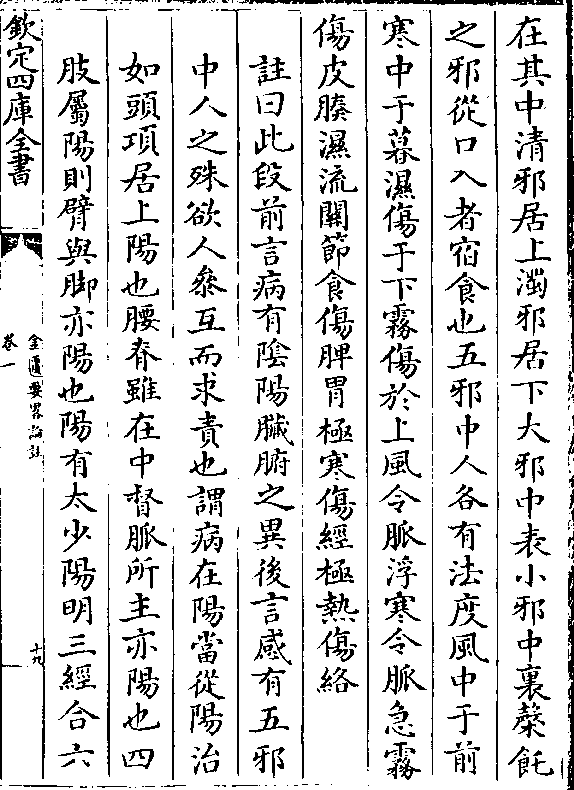 在其中清邪居上濁邪居下大邪中表小邪中裏䅽飥
之邪從口入者宿食也五邪中人各有法度風中于前
寒中于暮濕傷于下霧傷於上風令脈浮寒令脈急霧
傷皮腠濕流關節食傷脾胃極寒傷經極熱傷絡
註曰此段前言病有陰陽臟腑之異後言感有五邪
中人之殊欲人叅互而求責也謂病在陽當從陽治
如頭項居上陽也腰脊雖在中督脈所主亦陽也四
肢屬陽則臂與脚亦陽也陽有太少陽明三經合六
欽定四庫全書
金匱要畧論註
卷一
十九